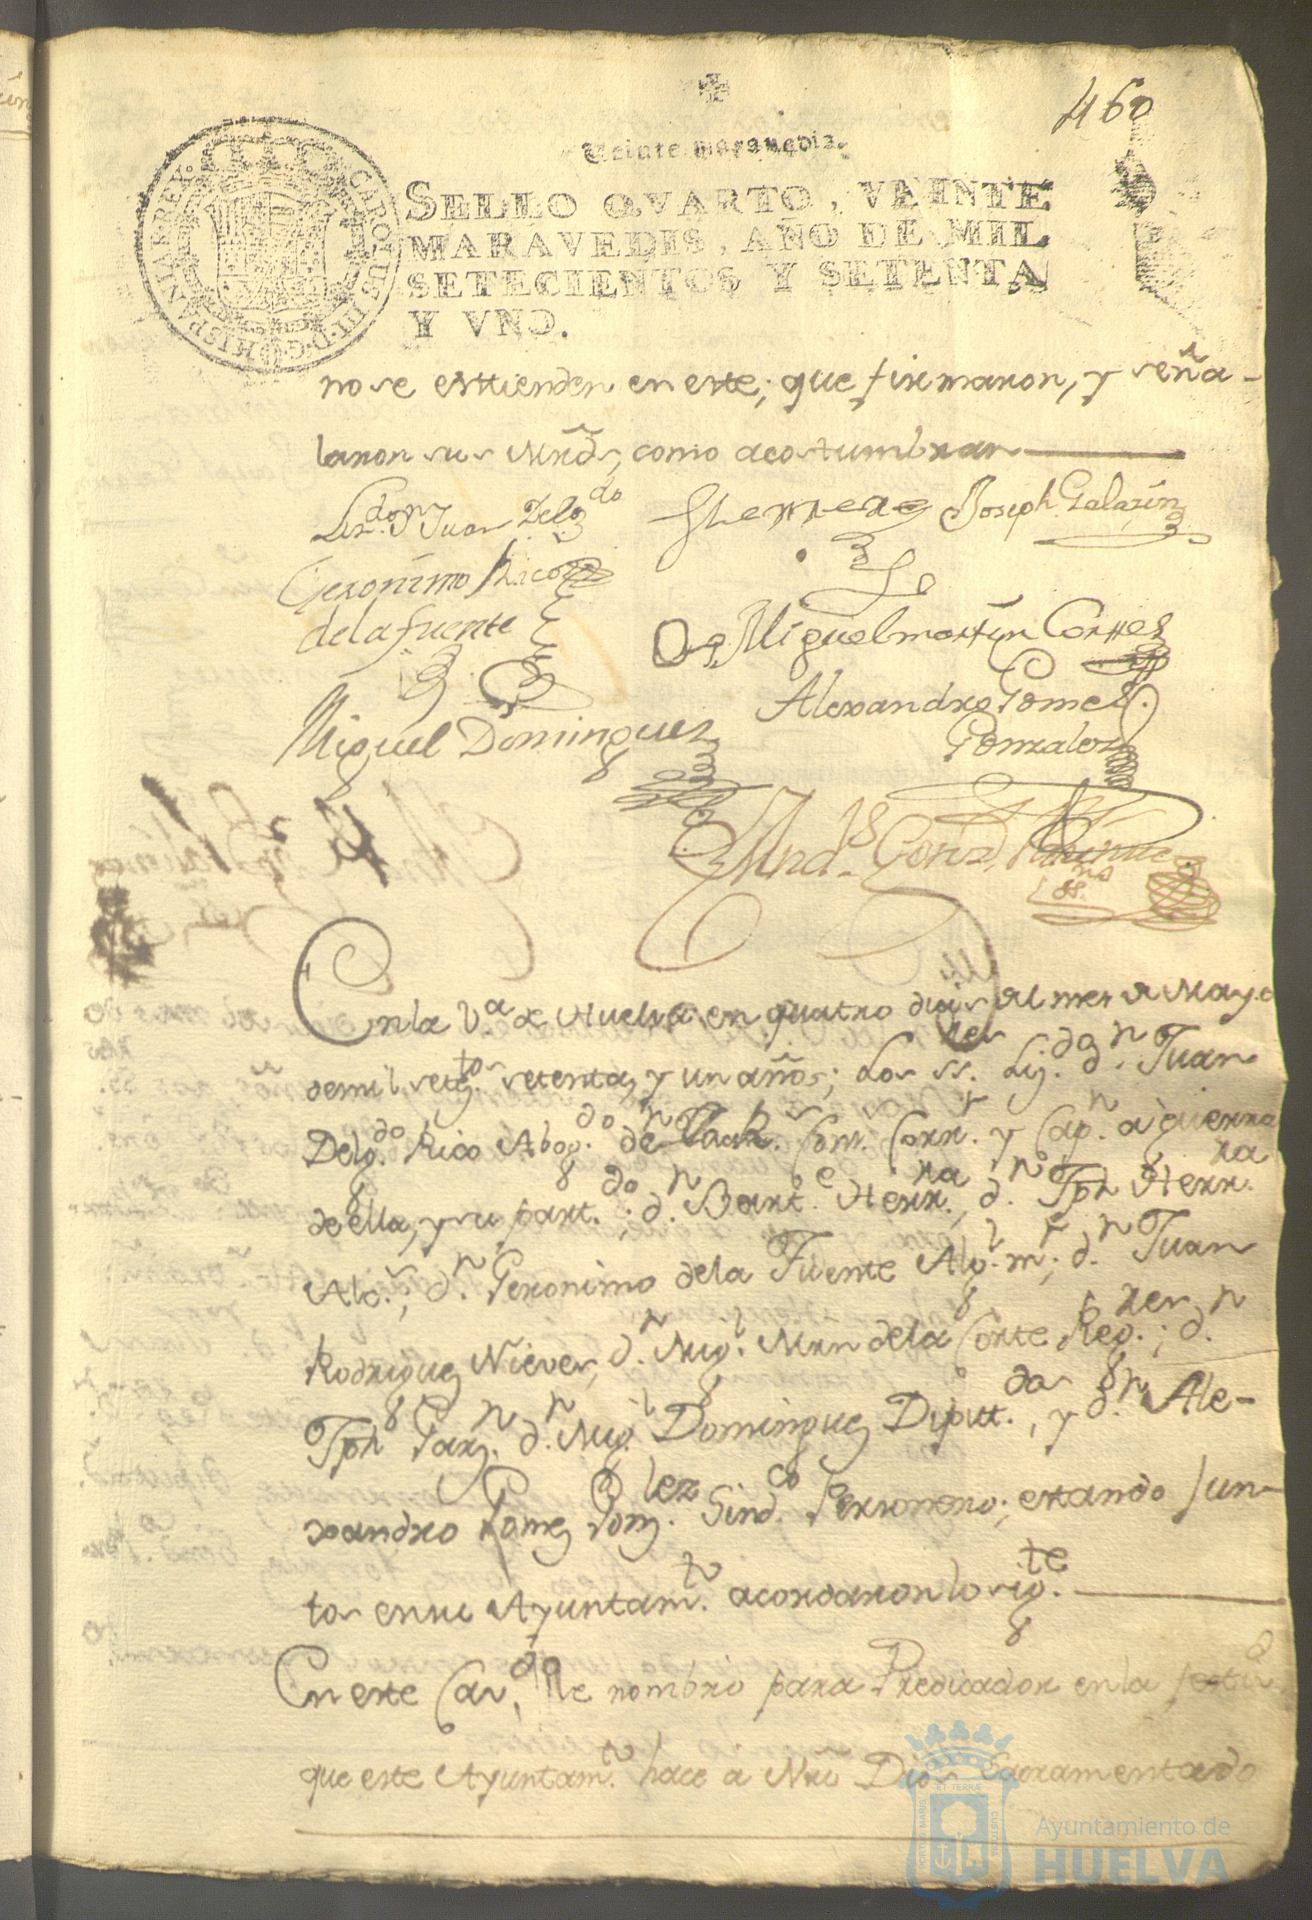 460
Veinte maravedis.
SELLO QVARTO, VEINTE
MARAVEDIS, AÑO DE MIL
SETECIENTOS Y SETENTA
Y VNO.
CAROLUS III D G HISPANIAR REX
no se esttienden en este; que firmaron, y seña-
laron sus Mrds, como acostumbran
Lizdo. Dn Juan Delgdo
Herrera
Joseph Galazin
Geronimo Rico
de la fuente
Miguel martin Cortes
Alexandro Gomez
Gonzalez
Miguel Dominguez
En la Va. de Huelva en quatro dias del mes de Mayo
de mil setectos. setenta, y un años; los Sres. Lizdo. dn. Juan
Delgdo. Rico Abogdo. de Corr. y Capn. a guerra
de ella, y su partdo.: dn. Barte. Herrra., dn. Jph Herrra
dn. Geronimo de la Fuente Algl. mr; dn. Juan
Rodriguez Nieves, dn. Migl. Mrn de la Corte Regres; dn.
Jph Garzn. dn. Migl. Dominguez Diputtdos, y dn. Ale-
xandro Gomez Gonzlez. Sindco Personero; estando Jun-
tos en su Ayuntamto. acordaron lo sigte.
En este Cavdo. se nombro para Predicador en la
que este Ayuntamto. hace a Nrô Dios Sacramentado
Ayuntamiento de
HUELVA